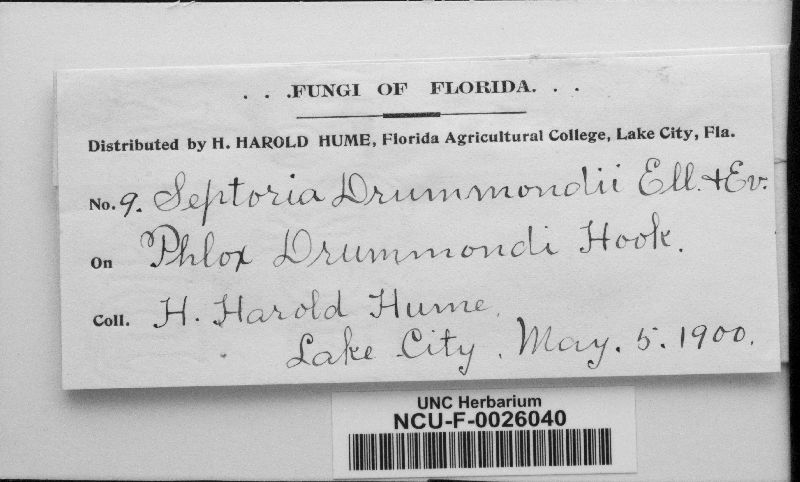 . . .FUNGI OF FLORIDA. . .
Distributed by H. HAROLD HUME, Florida Agricultural College, Lake City, Fla.
No. 9. Septoria Drummondii Ell. + Ev.
On Phlox Drummondi Hook.
Coll. H. Harold Hume.
Lake City. May. 5. 1900.
UNC Herbarium
NCU-F-0026040